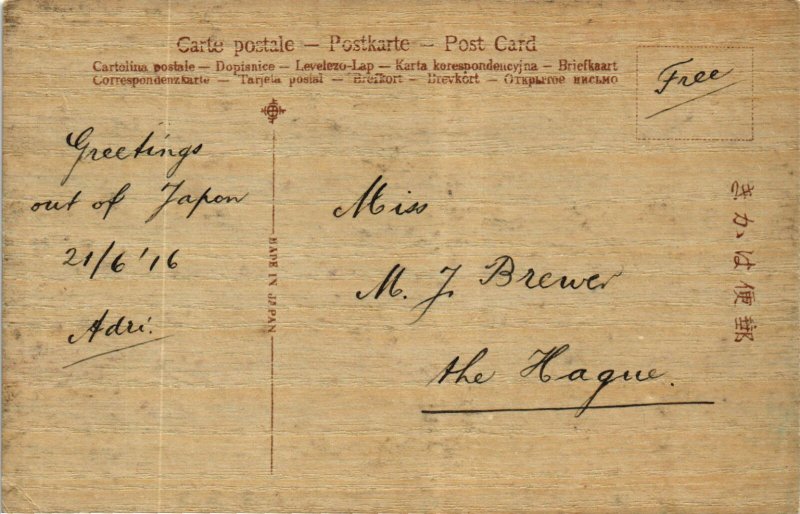 Carte postale — Postkarte — Post Card
Cartolina postale — Dopisnice — Levelezo-Lap — Karta korespondencyjna — Briefkaart
Correspondenzkarte — Tarjeta postal — Brefkort — Brevkort — Открытое письмо
Free
Greetings
out of Japon
21/6 '16
Adri.
MADE IN JAPAN
Miss
M. J. Brewer
the Hague.
きかは便郵